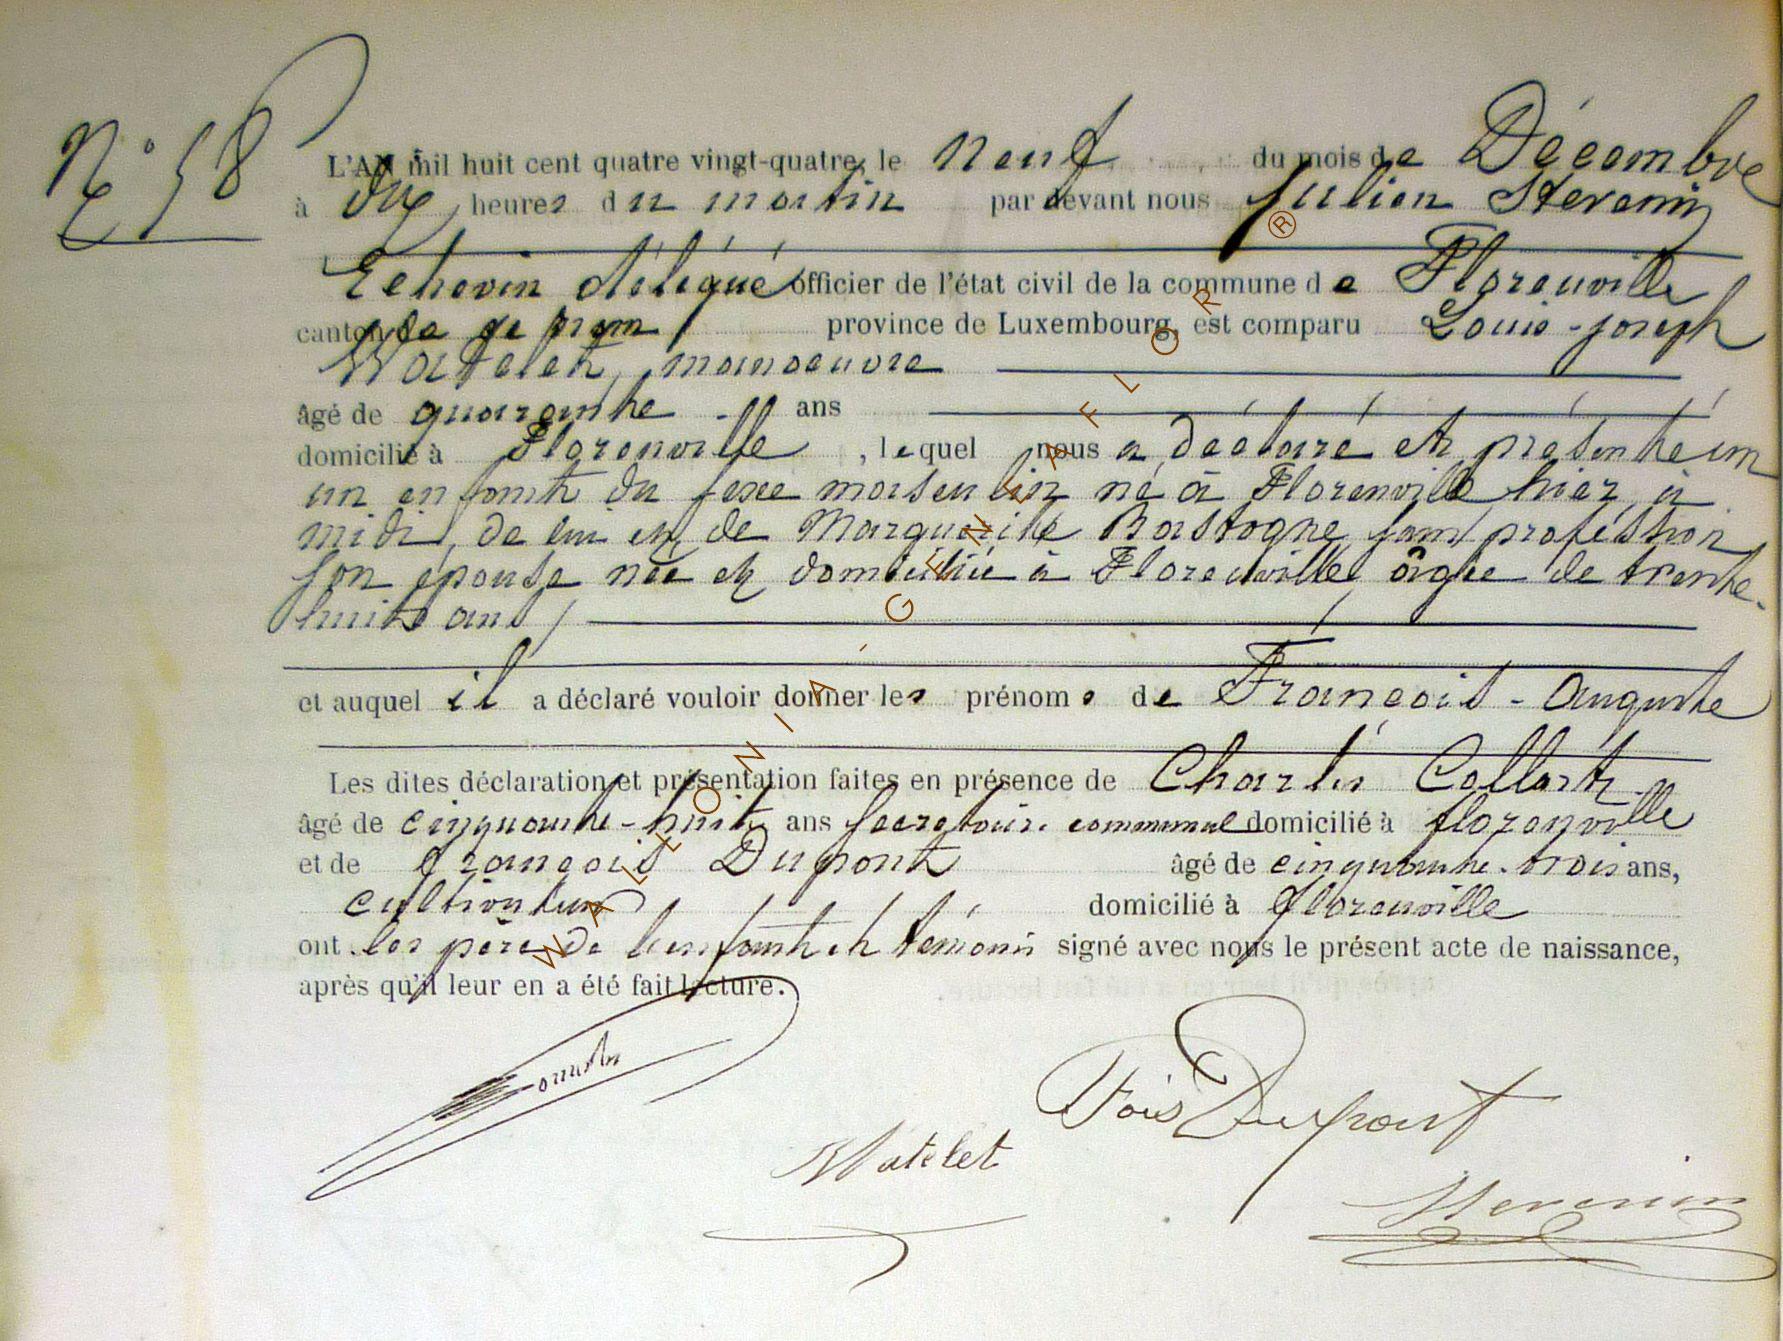 N° 58
L'AN mil huit cent quatre vingt-quatre, le neuf du mois de Décembre
à dix heures du matin par devant nous Julien Stevenin
Echevin délégué officier de l'état civil de la commune de Florenville
canton de province de Luxembourg, est comparu Louis-Joseph
Watelet, manoeuvre
âgé de quarante ans
domicilié à Florenville, lequel nous a déclaré et présenté un
un enfant du sexe masculin né à Florenville hier à
midi, de lui et de Marguerite Bastogne sans profession
son épouse née et domiciliée à Florenville, âgée de trente-
huit ans
et auquel il a déclaré vouloir donner les prénoms de François-Auguste
Les dites déclaration et présentation faites en présence de Charles Collart
âgé de cinquante-huit ans secrétaire communal domicilié à florenville
et de françois Dupont âgé de cinquante-trois ans,
cultivateur domicilié à florenville
ont les père de l'enfant et témoins signé avec nous le présent acte de naissance,
après qu'il leur en a été fait lecture.
Fois Dupont
Watelet
Stevenin
WALLONIA-GENERFLOR ®